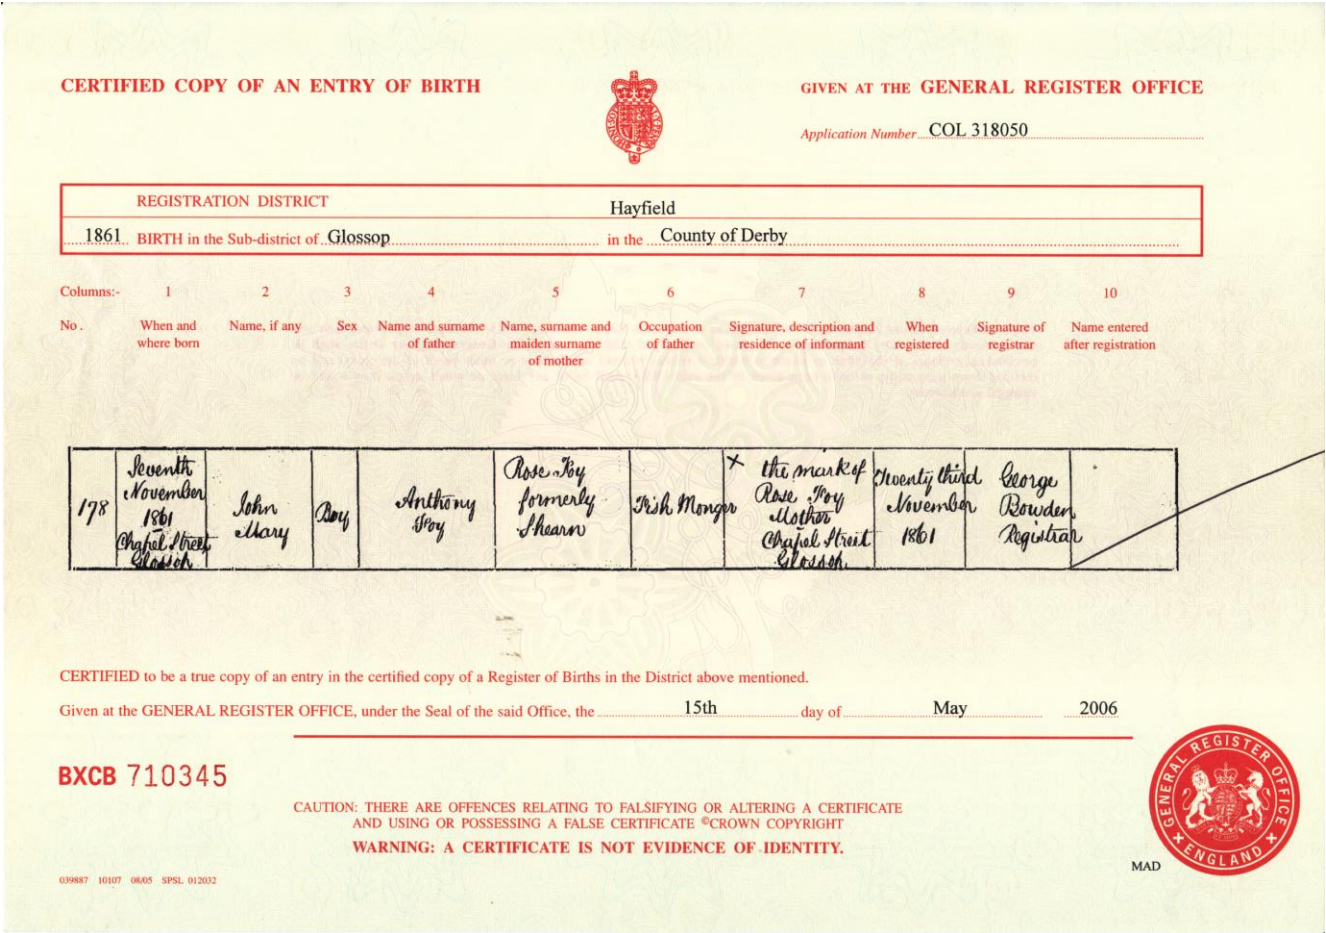 CERTIFIED COPY OF AN ENTRY OF BIRTH
GIVEN AT THE GENERAL REGISTER OFFICE
Application Number COL 318050
REGISTRATION DISTRICT Hayfield
1861 BIRTH in the Sub-district of Glossop in the County of Derby
Columns:- 1 2 3 4 5 6 7 8 9 10
No. When and where born Name, if any Sex Name and surname of father Name, surname and maiden surname of mother Occupation of father Signature, description and residence of informant When registered Signature of registrar Name entered after registration
178
Seventh
November
1861
Chapel Street
Glossop
John
Mary
Boy
Anthony
Foy
Rose Foy
formerly
Shearn
Fish Monger
X the mark of
Rose Foy
Mother
Chapel Street
Glossop
Twenty third
November
1861
George
Bowden
Registrar
CERTIFIED to be a true copy of an entry in the certified copy of a Register of Births in the District above mentioned.
Given at the GENERAL REGISTER OFFICE, under the Seal of the said Office, the 15th day of May 2006
BXCB 710345
CAUTION: THERE ARE OFFENCES RELATING TO FALSIFYING OR ALTERING A CERTIFICATE
AND USING OR POSSESSING A FALSE CERTIFICATE ©CROWN COPYRIGHT
WARNING: A CERTIFICATE IS NOT EVIDENCE OF IDENTITY.
GENERAL REGISTER OFFICE
ENGLAND
MAD
039887 10107 08/05 SPSL 012032